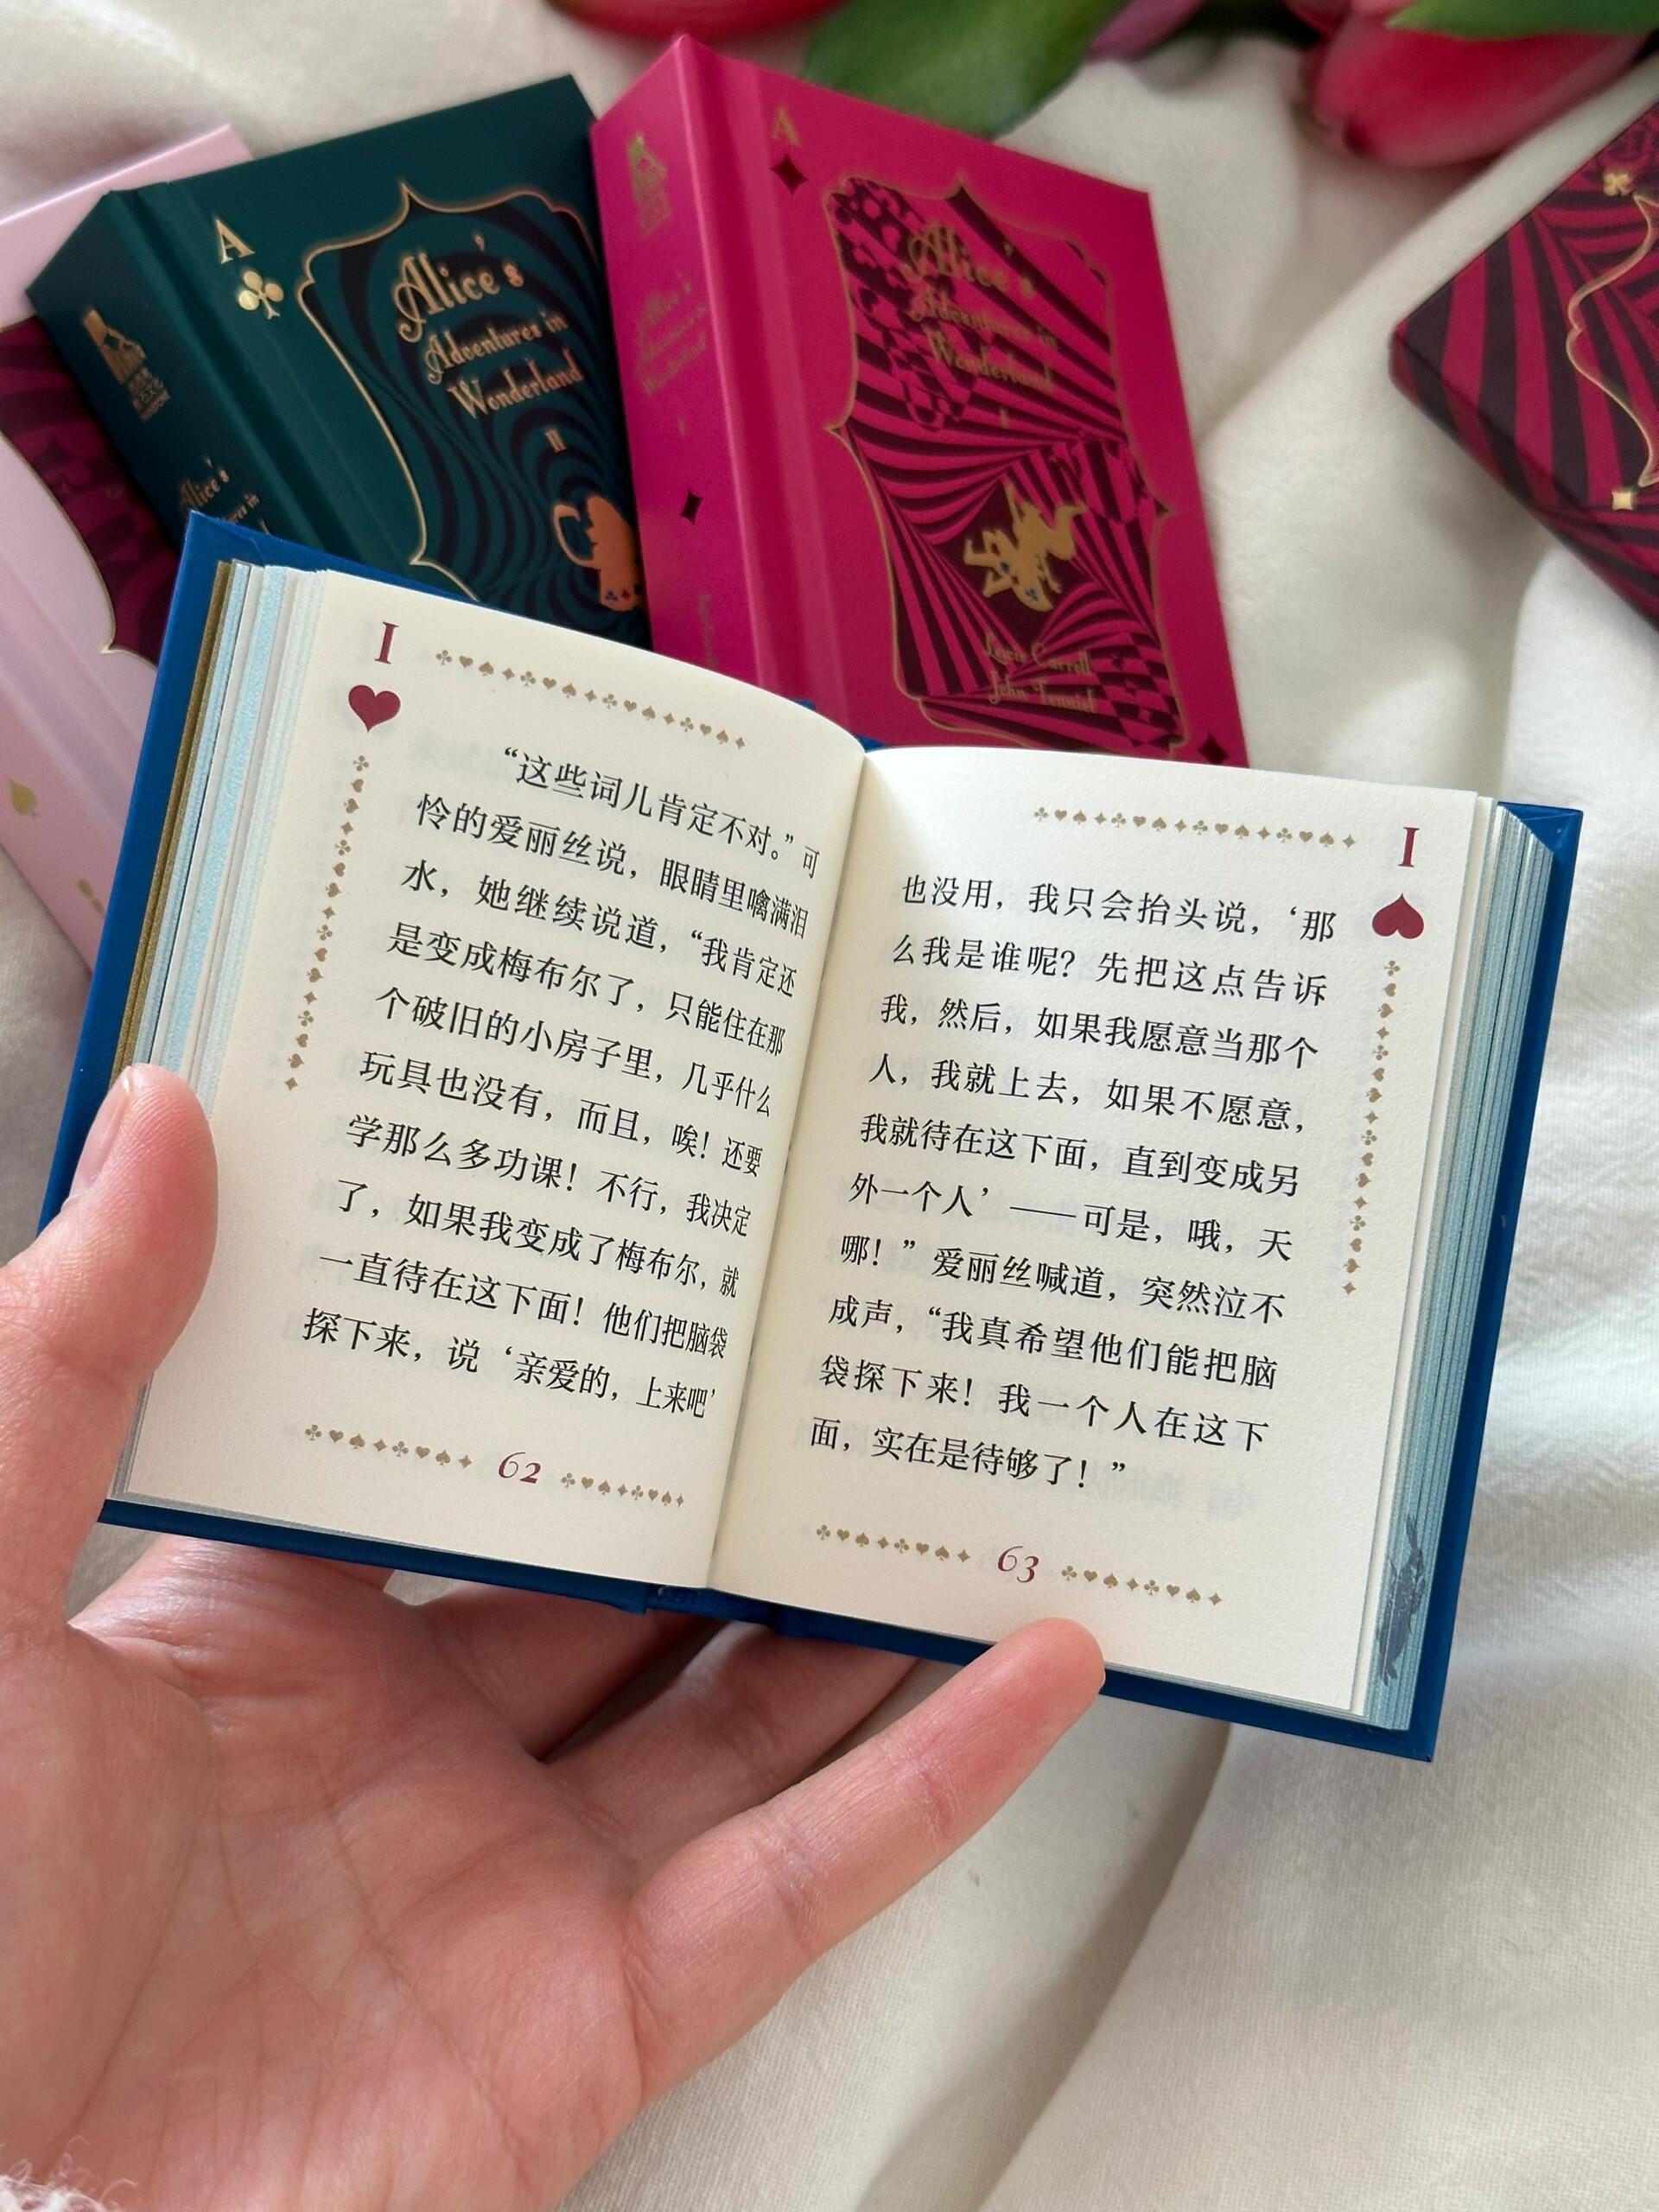 A
Alice's
Adventures in
Wonderland
II
Alice's
A
Alice's
Adventures in
Wonderland
I
Lewis Carroll
John Tenniel
Alice's
Adventures in
Wonderland
I
I
“这些词儿肯定不对。”可
怜的爱丽丝说，眼睛里噙满泪
水，她继续说道，“我肯定还
是变成梅布尔了，只能住在那
个破旧的小房子里，几乎什么
玩具也没有，而且，唉！还要
学那么多功课！不行，我决定
了，如果我变成了梅布尔，就
一直待在这下面！他们把脑袋
探下来，说‘亲爱的，上来吧’
62
I
也没用，我只会抬头说，‘那
么我是谁呢？先把这点告诉
我，然后，如果我愿意当那个
人，我就上去，如果不愿意，
我就待在这下面，直到变成另
外一个人’——可是，哦，天
哪！”爱丽丝喊道，突然泣不
成声，“我真希望他们能把脑
袋探下来！我一个人在这下
面，实在是待够了！”
63